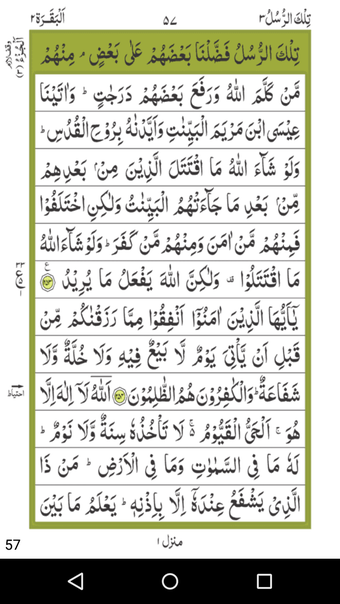 تِلْكَ الرُّسُلُ ٣ ٥٧ اَلْبَقَرَة ٢
تِلْكَ الرُّسُلُ فَضَّلْنَا بَعْضَهُمْ عَلٰى بَعْضٍ ۘ مِنْهُمْ
مَّنْ كَلَّمَ اللّٰهُ وَرَفَعَ بَعْضَهُمْ دَرَجٰتٍ ؕ وَاٰتَيْنَا
عِيْسَى ابْنَ مَرْيَمَ الْبَيِّنٰتِ وَاَيَّدْنٰهُ بِرُوْحِ الْقُدُسِ ؕ
وَلَوْ شَآءَ اللّٰهُ مَا اقْتَتَلَ الَّذِيْنَ مِنْۢ بَعْدِهِمْ
مِّنْۢ بَعْدِ مَا جَآءَتْهُمُ الْبَيِّنٰتُ وَلٰكِنِ اخْتَلَفُوْا
فَمِنْهُمْ مَّنْ اٰمَنَ وَمِنْهُمْ مَّنْ كَفَرَ ؕ وَلَوْ شَآءَ اللّٰهُ
مَا اقْتَتَلُوْا ۟ وَلٰكِنَّ اللّٰهَ يَفْعَلُ مَا يُرِيْدُ ۝٢٥٣
يٰۤاَيُّهَا الَّذِيْنَ اٰمَنُوْۤا اَنْفِقُوْا مِمَّا رَزَقْنٰكُمْ مِّنْ
قَبْلِ اَنْ يَّاْتِيَ يَوْمٌ لَّا بَيْعٌ فِيْهِ وَلَا خُلَّةٌ وَّلَا
شَفَاعَةٌ ؕ وَالْكٰفِرُوْنَ هُمُ الظّٰلِمُوْنَ ۝٢٥٤ اَللّٰهُ لَاۤ اِلٰهَ اِلَّا
هُوَ ۚ اَلْحَيُّ الْقَيُّوْمُ ۚ لَا تَاْخُذُهٗ سِنَةٌ وَّلَا نَوْمٌ ؕ
لَهٗ مَا فِي السَّمٰوٰتِ وَمَا فِي الْاَرْضِ ؕ مَنْ ذَا
الَّذِيْ يَشْفَعُ عِنْدَهٗۤ اِلَّا بِاِذْنِهٖ ؕ يَعْلَمُ مَا بَيْنَ
احتیاط
57
منزل ١